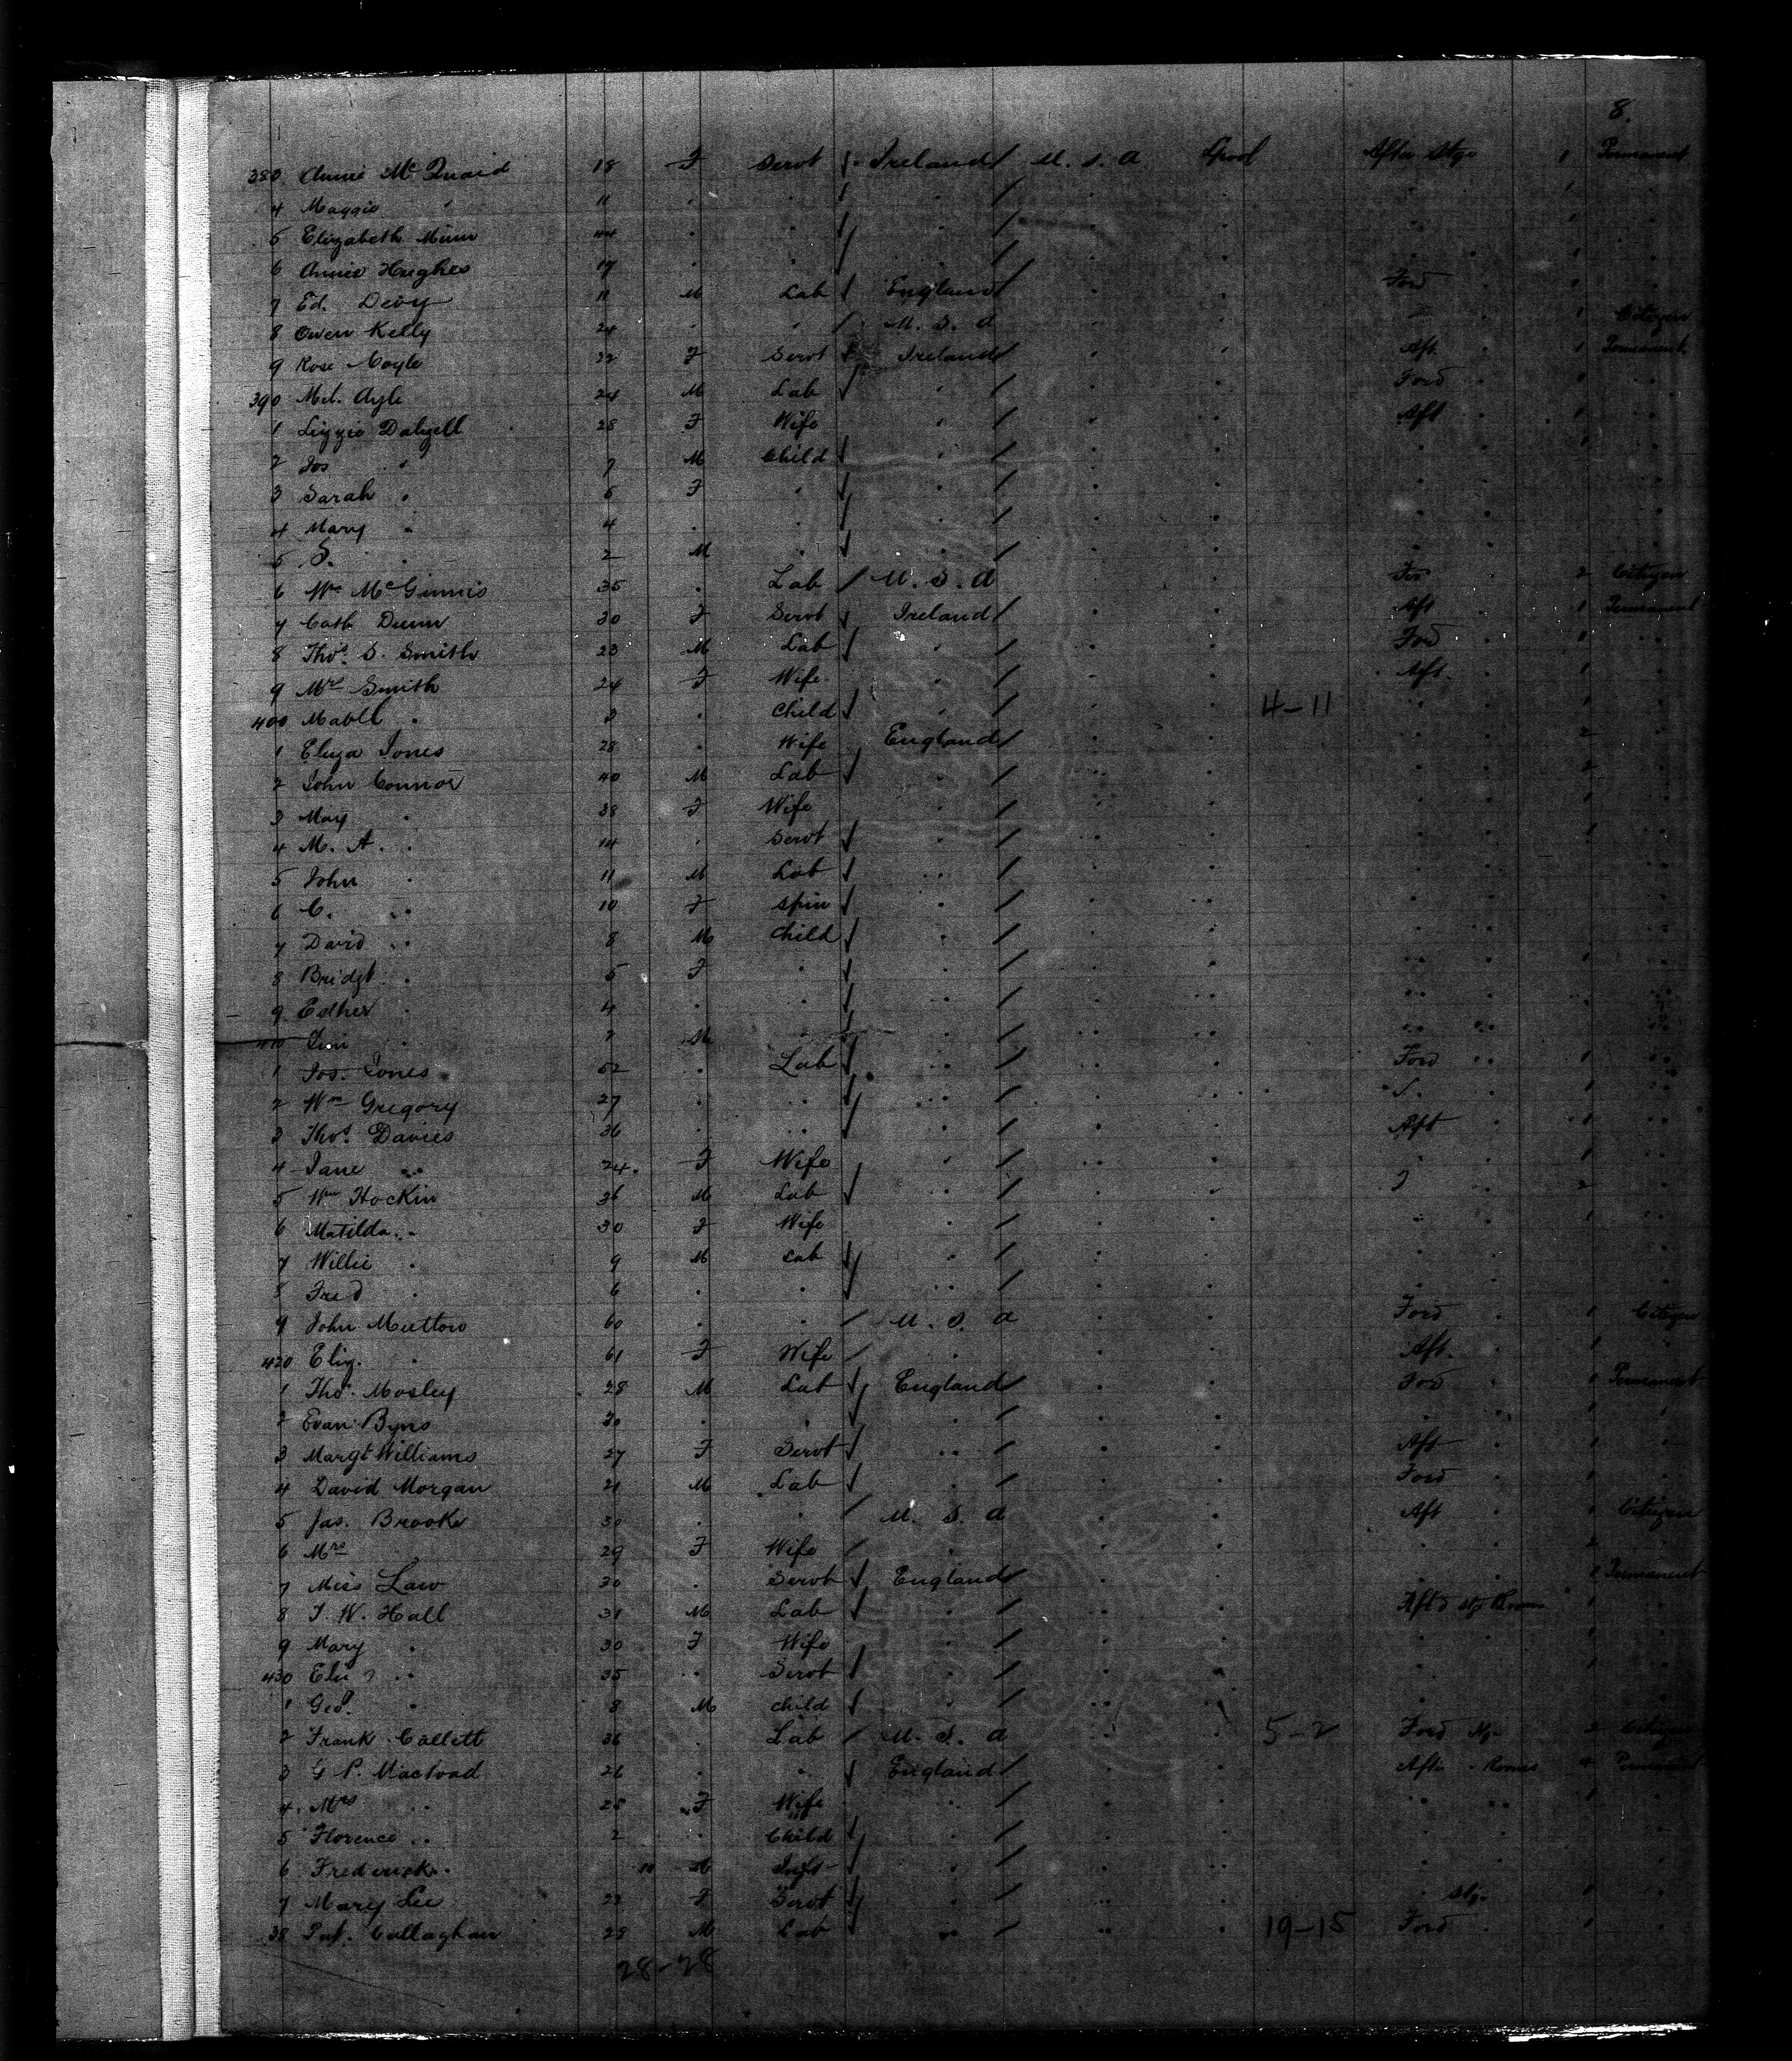 8.
383 Annie McQuaid 18 F Servt Ireland U.S.A Lpool After Stge 1 Permanent
4 Maggie " 11 " " " " " " 1 "
5 Elizabeth Minn 44 " " " " " " 1 "
6 Annie Hughes 19 " " " " " " 1 "
7 Ed. Devy 11 M Lab England " " Ford " 1 "
8 Owen Kelly 24 " " U.S.A " " " 1 Citizen
9 Rose Coyle 22 F Servt Ireland " " Aft " 1 Permanent
390 Ml. Ayle 24 M Lab " " " Ford " 1 "
1 Lizzie Dalzell 28 F Wife " " " Aft " 1 "
2 Jos " 7 M Child " " " " 1 "
3 Sarah " 5 F " " " " " "
4 Mary " 4 " " " " " " "
5 S. " 2 M " " " " " "
6 Wm McGinnis 35 " Lab U.S.A " " For " 2 Citizen
7 Cath Dunn 30 F Servt Ireland " " Aft " 1 Permanent
8 Thos. S. Smith 23 M Lab " " " Ford " 1 "
9 Mrs Smith 24 F Wife " " " Aft. " 1 "
400 Mabll " 3 " Child " " " 4-11 " 1 "
1 Eliza Jones 28 " Wife England " " " 2 "
2 John Connor 40 M Lab " " " " 2 "
3 May " 38 F Wife " " " " 1 "
4 M. A. " 14 " Servt " " " " 1 "
5 John " 11 M Lab " " " " "
6 C. " 10 F Spin " " " " "
7 David " 8 M Child " " " " "
8 Bridgt " 5 F " " " " " "
9 Esther " 4 " " " " " " "
410 " M " " " " " "
1 Jos. Jones 52 " Lab " " " Ford " 1 "
2 Wm Gregory 27 " " " " " " 1 "
3 Thos. Davies 36 " " " " " Aft " 1 "
4 Jane " 24 F Wife " " " " 1 "
5 Wm Hockin 36 M Lab " " " " 2 "
6 Matilda " 30 F Wife " " " " 1 "
7 Willie " 9 M Lab " " " " "
8 Fred " 6 " " " " " " "
9 John Mutton 60 " " U.S.A " " Ford " 1 Citizen
420 Eliz. " 61 F Wife " " " Aft. " 1 "
1 Thos. Mosley 28 M Lab England " " Ford " 1 Permanent
2 Evan Byns 30 " " " " " " 1 "
3 Margt Williams 27 F Servt " " " Aft " 1 "
4 David Morgan 21 M Lab " " " Ford " 1 "
5 Jas. Brooke 30 " " U.S.A " " Aft " 1 Citizen
6 Mrs " 29 F Wife " " " " 2 "
7 Miss Law 30 " Servt England " " " 1 Permanent
8 J. W. Hall 31 M Lab " " " Aft'd Stg Room 1 "
9 Mary " 30 F Wife " " " " 1 "
430 " 35 " Servt " " " " 1 "
1 Geo. " 8 M Child " " " " "
2 Frank Collett 36 " Lab U.S.A " " 5-2 Ford 2 Citizen
3 G P. Macload 26 " " England " " After Rooms Permanent
4 Mrs " 25 F Wife " " " " 1 "
5 Florence " 2 " Child " " " " "
6 Frederick " 10 M Inft " " " " "
7 Mary Lee 22 F Servt " " " Stge 1 "
38 Pat. Callaghan 28 M Lab " " " 19-15 Ford " 1 "
28-28